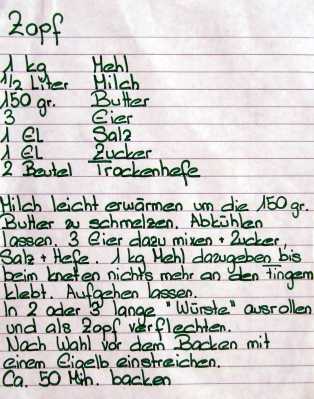 Zopf
1 kg Mehl
1/2 Liter Milch
150 gr. Butter
3 Eier
1 EL Salz
1 EL Zucker
2 Beutel Trockenhefe
Milch leicht erwärmen um die 150 gr.
Butter zu schmelzen. Abkühlen
lassen. 3 Eier dazu mixen + Zucker,
Salz + Hefe. 1 kg Mehl dazugeben bis
beim kneten nichts mehr an den Fingern
klebt. Aufgehen lassen.
In 2 oder 3 lange "Würste" ausrollen
und als Zopf verflechten.
Nach Wahl vor dem Backen mit
einem Eigelb einstreichen.
Ca. 50 Min. backen